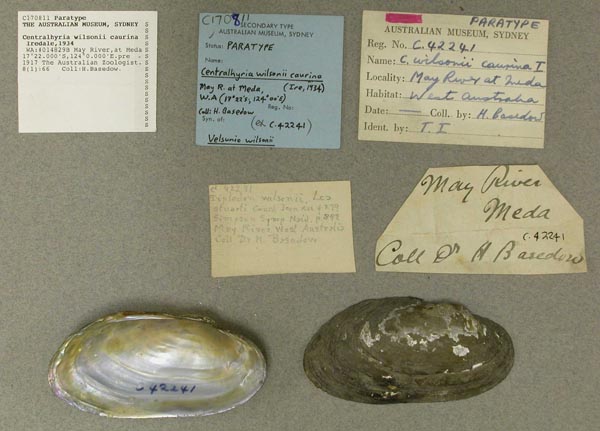 C170811 Paratype
THE AUSTRALIAN MUSEUM, SYDNEY
Centralhyria wilsonii caurina
Iredale,1934
WA:8014829B May River,at Meda
17'22.000'S,124'0.000'E.pre
1917 The Australian Zoologist.
8(1):66 Coll:H.Basedow.
S
S
S
S
S
S
S
S
S
S
S
C170811
SECONDARY TYPE
AUSTRALIAN MUSEUM, SYDNEY
Status: PARATYPE
Name:
Centralhyria wilsonii caurina
May R. at Meda, (Ire, 1934)
W.A (17°22's, 124°00'E)
Reg. No:
Coll: H. Basedow
Syn. of: (ex C.42241)
Velsunio wilsonii
PARATYPE
AUSTRALIAN MUSEUM, SYDNEY
Reg. No. C.42241
Name: C. wilsonii caurina I
Locality: May River at Meda
Habitat: West Australia
Date: — Coll. by: H. Basedow
Ident. by: T. I
C. 42241
wilsonii, Lea
stuarti
Simpson Synop Naid, p.
May River West Australia
Coll Dr H. Basedow
May River
Meda
C.42241
Coll Dr H Basedow
C.42241